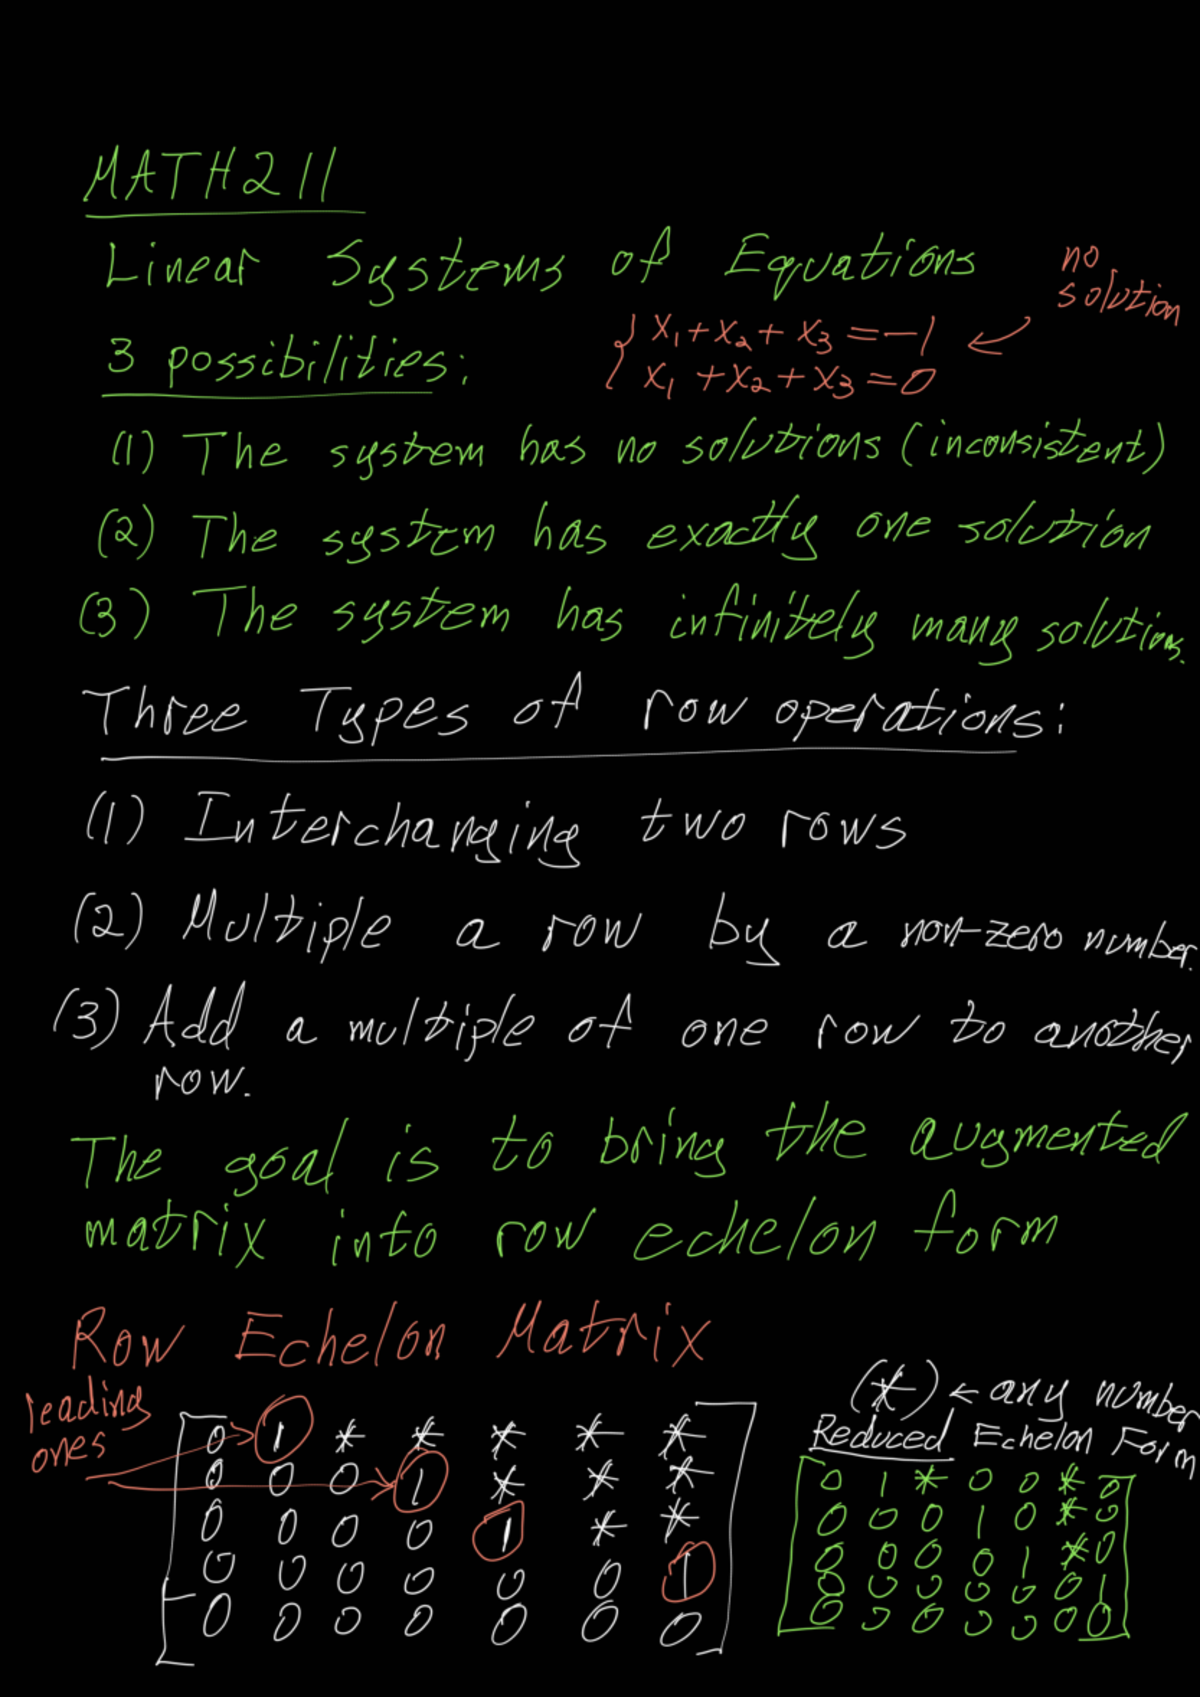 MATH211
Linear Systems of Equations
no
solution
3 possibilities:
{ x₁+x₂+x₃=-1 ←
x₁+x₂+x₃=0
(1) The system has no solutions (inconsistent)
(2) The system has exactly one solution
(3) The system has infinitely many solutions.
Three Types of row operations:
(1) Interchanging two rows
(2) Multiple a row by a non-zero number.
(3) Add a multiple of one row to another
row.
The goal is to bring the augmented
matrix into row echelon form
Row Echelon Matrix
leading
ones
0 1 * * * * *
0 0 0 1 * * *
0 0 0 0 1 * *
0 0 0 0 0 0 1
0 0 0 0 0 0 0
(*) ← any number
Reduced Echelon Form
0 1 * 0 0 * 0
0 0 0 1 0 * 0
0 0 0 0 1 * 0
0 0 0 0 0 0 1
0 0 0 0 0 0 0